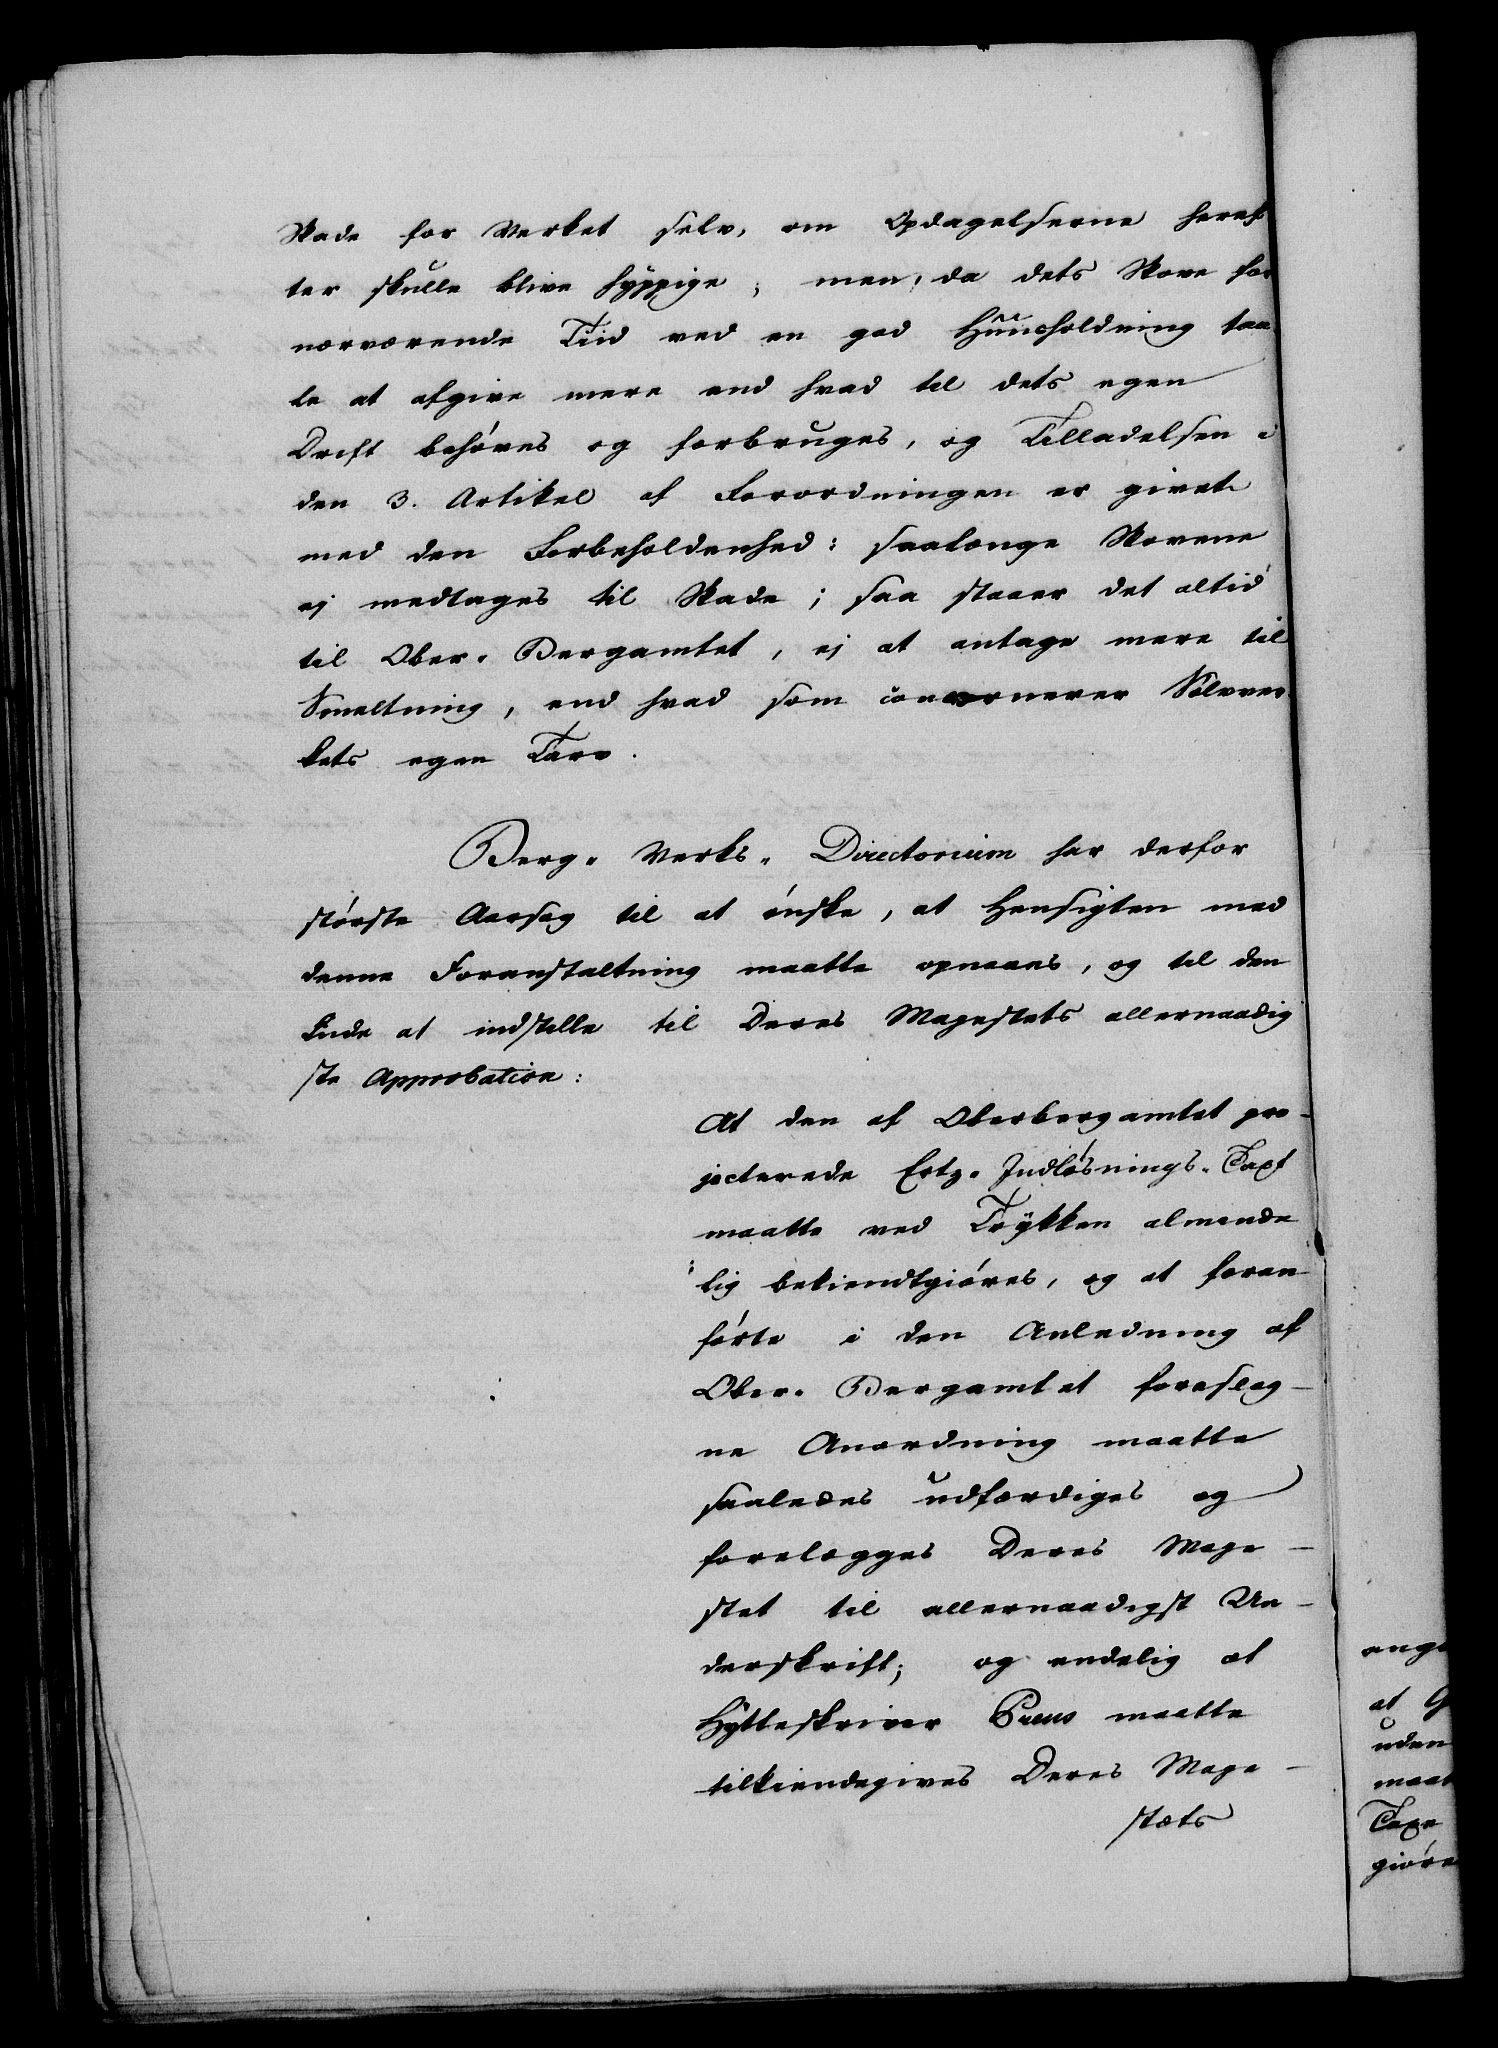 Skade for Verket selv, om Opdagelserne heref
ter skulle blive hyppige; men, da dets Skove for
nærværende Tiid ved en god Huusholdning taa-
le at afgive mere end hvad til dets egen
Drift behøves og forbruges, og Tilladelsen i
den 3. Artikel af Forordningen er givet
med den Forbeholdenhed: saalænge Skovene
ej medtages til Skade; saa staaer det altid
til Ober-Bergamtet, ej at antage mere til
Smeltning, end hvad som concernerer Sølvver-
kets egen Tarv.
Berg-Verks-Directorium har derfor
største Aarsag til at ønske, at Hensigten med
denne Foranstaltning maatte opnaaes, og til den
Ende at indstille til Deres Majestets allernaadig
ste Approbation:
At den af Oberbergamtet pro-
jecterede Ertz-Indløsnings-Taxt
maatte ved Trykken almende
lig bekiendtgiøres, og at foran
førte i den Anledning af
Ober-Bergamtet foreslag-
ne Anordning maatte
saaledes udfærdiges og
forelægges Deres Maje-
stet til allernaadigst Un-
derskrift; og endelig at
Hytteskriver Preus maatte
tilkiendegives Deres Maje-
stæts
at G
uden
maat
Taxe
giøre